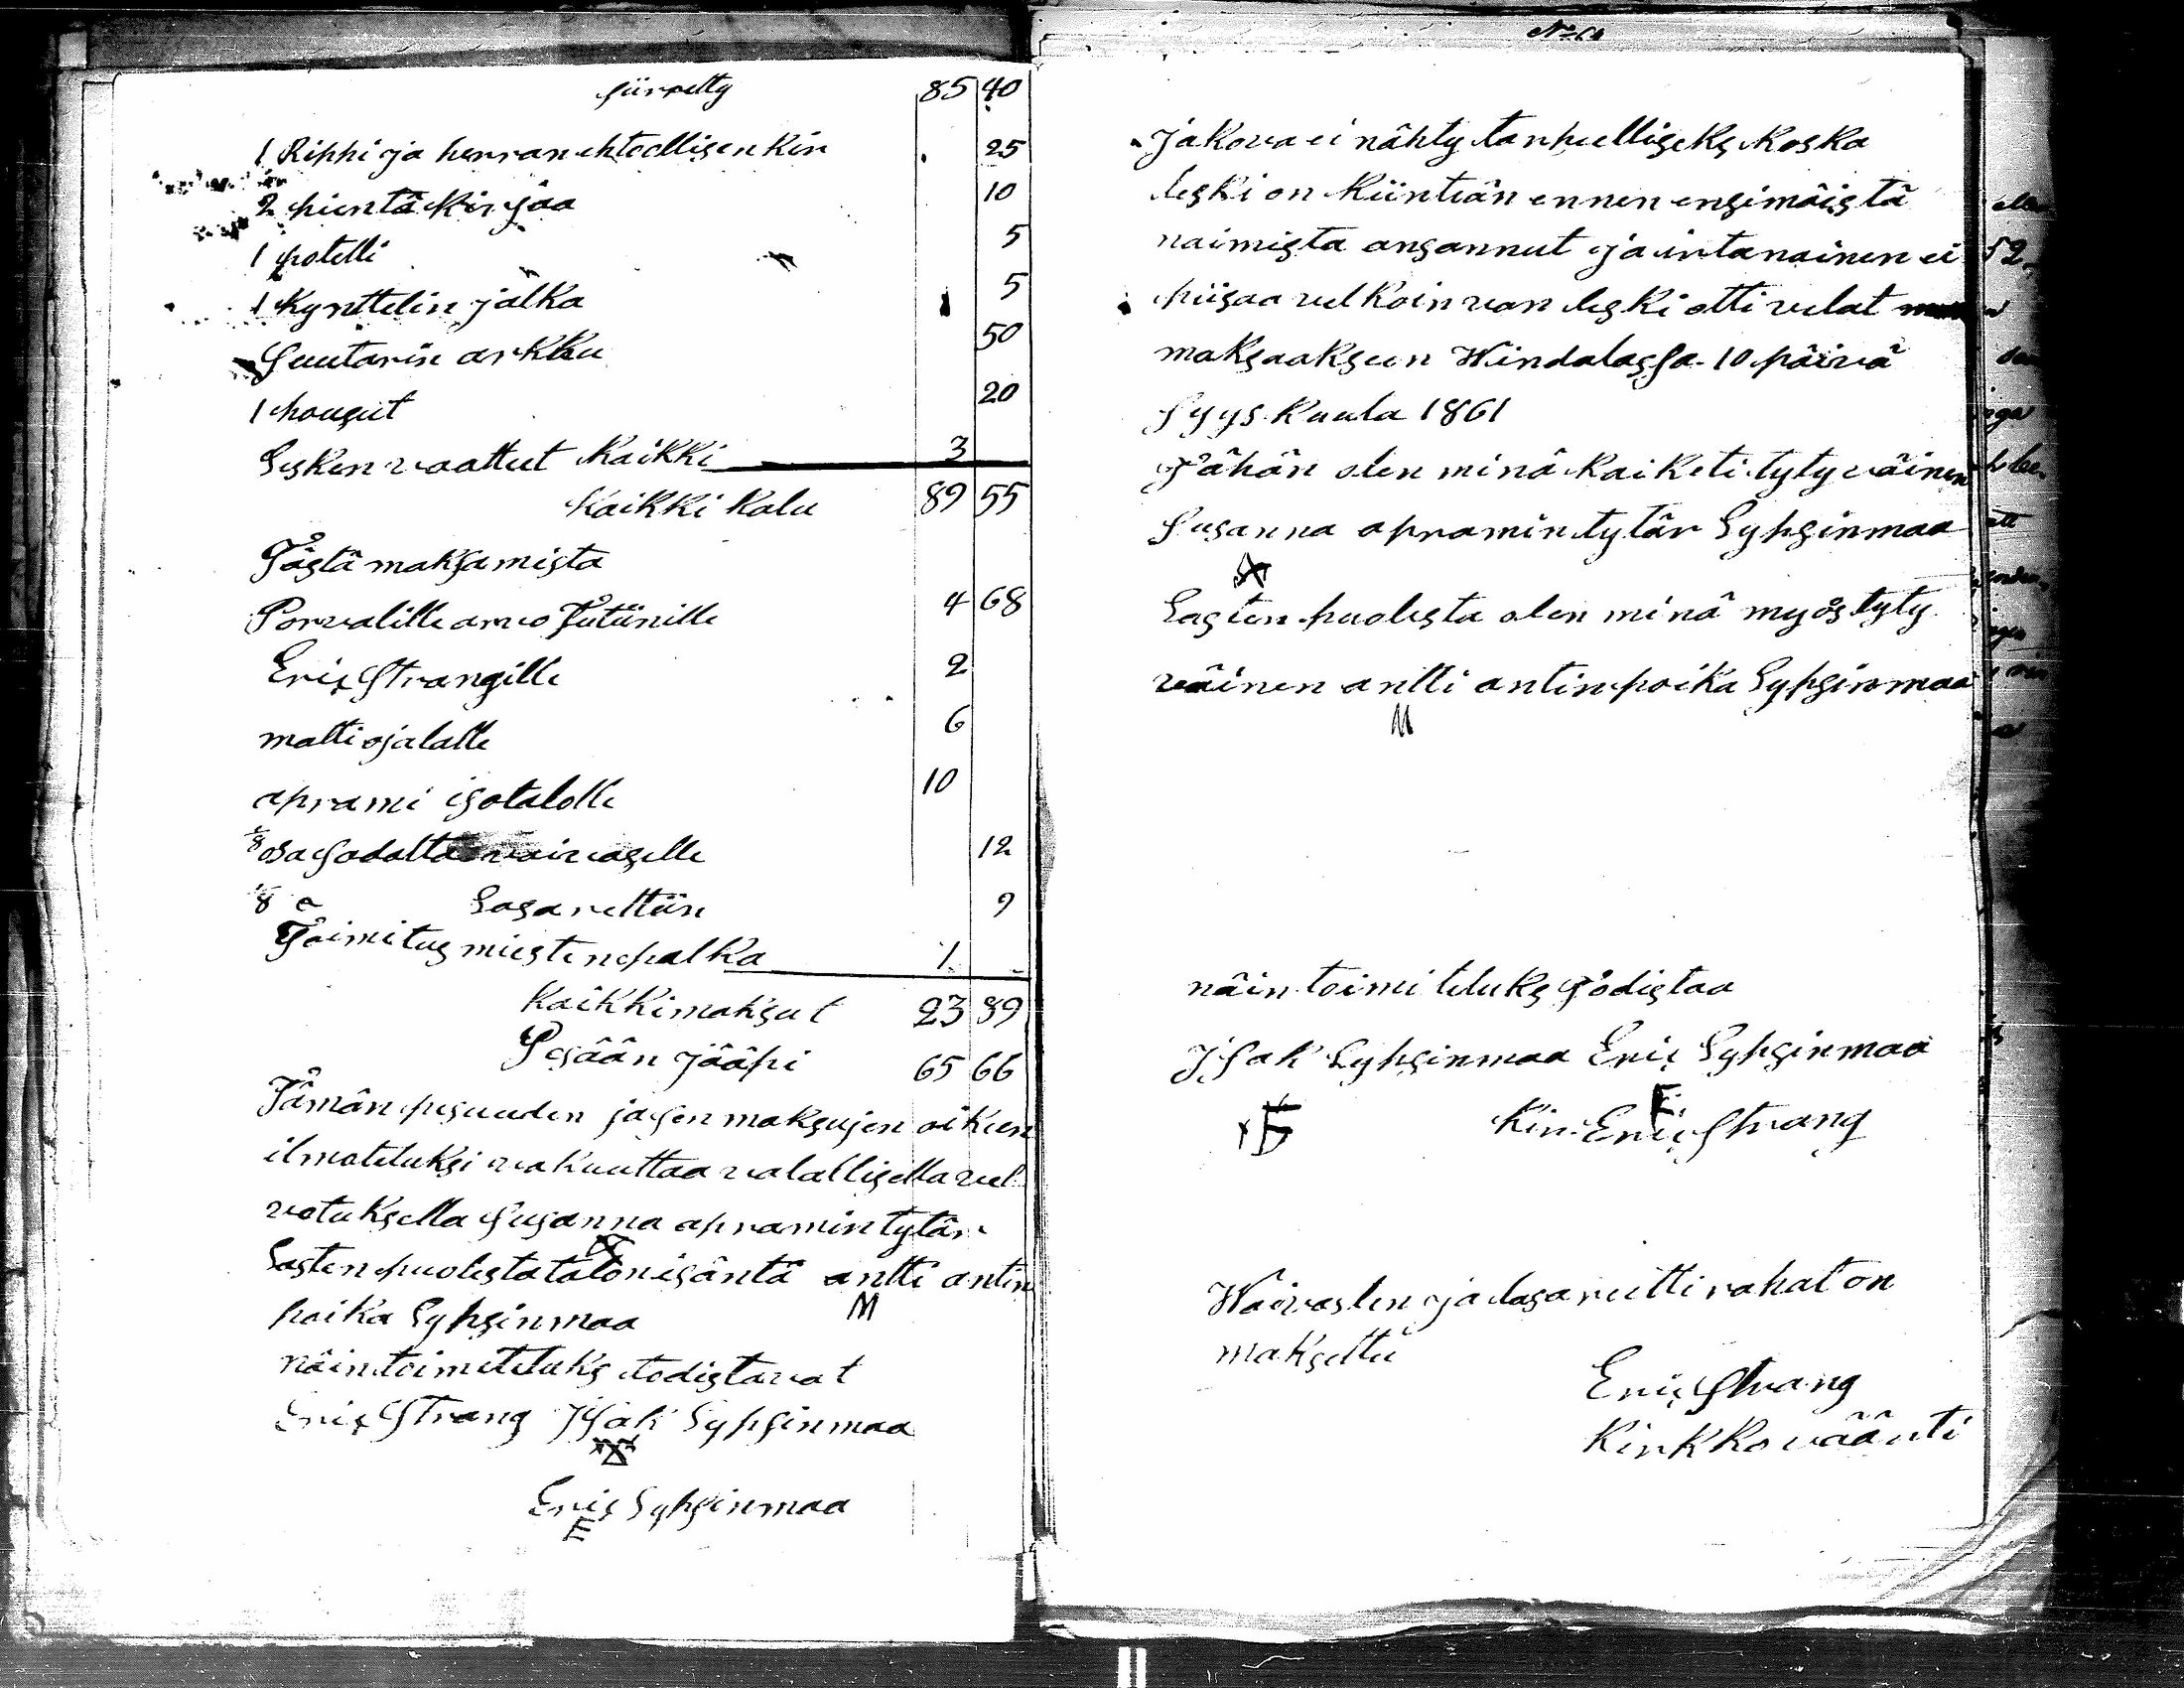 siirretty 85 40
1 Rippi ja herran ehtoollisen kir 25
2 pientä kirjaa 10
1 potelli 5
1 kynttelin jalka 5
Suutarin arkku 50
1 housut 20
Lesken vaattet kaikki 3
kaikki kalu 89 55
Tästä maksamista
Porvalille arvo Jutiinille 4 68
Erix Strangille 2
matti ojalalle 6
aprami isotalolle 10
1/8 osa sadalta vaivaselle 12
1/8 Lasarettiin 9
Toimitus miesten palka 1 -
kaikki maksut 23 89
Pesään jääpi 65 66
Tämän pesuuden ja sen maksujen oikeen
ilmotetuksi vakuuttaa valallisella vel
votuksella Susanna apramin tytär
Lasten puolesta talon isäntä antti antin
M
poika Lypsinmaa
näin toimitetuks todistavat
Erix Strang Isak Lypsinmaa
Erix Lypsinmaa
E
Jakova ei nähty tarpeelliseks koska
leski on kiintiän ennen ensimäistä
naimista ansannut ja irtanainen ei
piisaa velkoin van leski otti velat
maksaakseen Windalassa 10 päivä
Syys kuula 1861
Tähän olen minä kaiketi tyty väinen
Susanna apramin tytär Lypsinmaa
Lasten puolesta olen minä myös tyty
väinen antti antin poika Lypsinmaa
M
näin toimitetuks todistaa
Isak Lypsinmaa Erix Lypsinmaa
E
Kir. Erix Strang
Waivasten ja lasareitti rahat on
maksettu
Erix Strang
Kirkko väärti